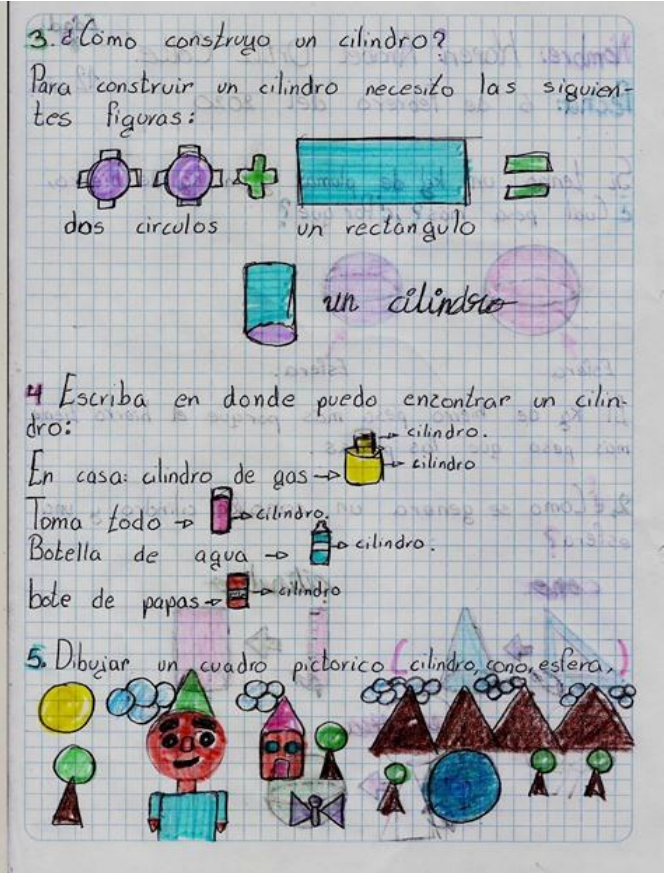 3. ¿Cómo construyo un cilindro?
Para construir un cilindro necesito las siguien-
tes figuras:
dos circulos un rectangulo
un cilindro
4 Escriba en donde puedo encontrar un cilin-
dro:
cilindro.
En casa: cilindro de gas → cilindro
Toma todo → cilindro.
Botella de agua → cilindro.
bote de papas → cilindro
5. Dibujar un cuadro pictorico (cilindro, cono, esfera,)